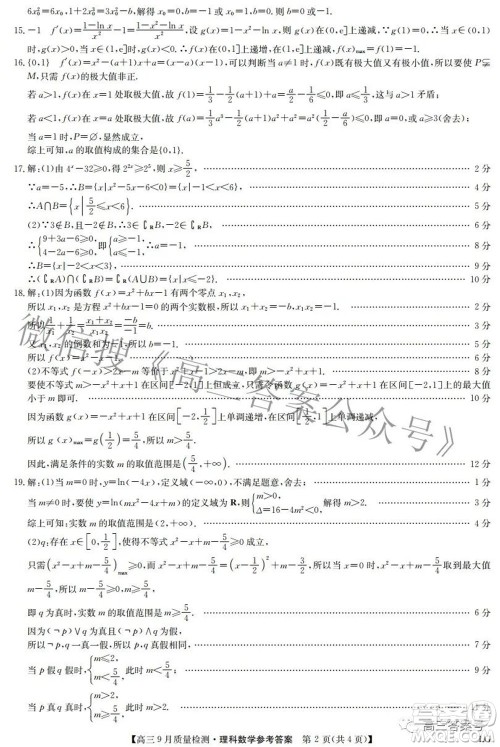 6x₀²=6x₀,1+2x₀²=3x₀²-b,解得 x₀=0,b=-1 或 x₀=1,b=0,则 b=0 或-1.
15.-1 f′(x)=(1-ln x)/x²-1=(1-x²-ln x)/x²,设 g(x)=1-x²-ln x,则 g(x)在(0,e]上递减,∵g(1)=0,当 x∈(0,1)
时,f′(x)>0,当 x∈(1,e]时,f′(x)<0,∴f(x)在(0,1]上递增,在[1,e]上递减,∴f(x)max=f(1)=-1.
16.{0,1} f′(x)=x²-(a+1)x+a=(x-a)(x-1),可以判断当 a≠1 时,f(x)既有极大值又有极小值,所以要使 P⫋
M,只需 f(x)的极大值非正.
若 a>1,f(x)在 x=1 处取极大值,故 f(1)=1/3-1/2(a+1)+a=a/2-1/6≤0,即 a≤1/3,这与 a>1 矛盾;
若 a<1,f(x)在 x=a 处取极大值,故 f(a)=1/3a³-1/2(a+1)a²+a²=a²(1/2-a/6)≤0,即 a=0,或 a≥3(舍去);
当 a=1 时,P=∅,显然成立,
综上可知,a 的取值构成的集合是{0,1}.
17.解:(1)由 4ˣ-32≥0,得 2²ˣ≥2⁵,则 x≥5/2, 2 分
∵a=-5,∴B={x|x²-5x-6<0}={x|-1<x<6}, 4 分
∴A∩B={x|5/2≤x<6}. 5 分
(2)∵3∉B,且-2∉B,∴3∈∁ᴿB,-2∈∁ᴿB, 6 分
∴{9+3a-6≥0, 4-2a-6≥0,即{a≥-1, a≤-1,∴a=-1, 8 分
∴B={x|-2<x<3}, 9 分
∴(∁ᴿA)∩(∁ᴿB)=∁ᴿ(A∪B)={x|x≤-2}. 10 分
18.解:(1)因为函数 f(x)=x²+bx-1 有两个零点 x₁,x₂,
所以 x₁,x₂ 是方程 x²+bx-1=0 的两个实数根,所以 x₁+x₂=-b,x₁x₂=-1. 2 分
所以1/x₁+1/x₂=(x₁+x₂)/(x₁x₂)=-b/-1=b. 3 分
又 x₁,x₂ 的倒数和为-1,所以 b=-1. 5 分
所以 f(x)=x²-x-1. 6 分
(2)不等式 f(x)>2x-m 等价于 x²-x-1>2x-m, 8 分
要使不等式 m>-x²+x+1 在[-2,1]上恒成立,只需令函数 g(x)=-x²+x+1 在区间[-2,1]上的最大值
小于 m 即可. 10 分
因为函数 g(x)=-x²+x+1 在区间[-2,1/2]上单调递增,在区间[1/2,1]上单调递减,
所以 g(x)max=g(1/2)=5/4,所以 m>5/4.
因此,满足条件的实数 m 的取值范围是(5/4,+∞). 12 分
19.解:(1)当 m=0 时,y=ln(-4x),定义域(-∞,0),不满足题意,舍去; 1 分
当 m≠0 时,要使 y=ln(mx²-4x+m)的定义域为 R,则{m>0, Δ=16-4m²<0, 解得 m>2. 3 分
综上可知:实数 m 的取值范围是(2,+∞). 4 分
(2)q:存在 x∈[0,1/2],使得不等式 x²-x+m-5/4≥0 成立,
只需(x²-x+m-5/4)max≥0,而 x²-x+m-5/4=(x-1/2)²+m-3/2,所以当 x=0 时,x²-x+m-5/4取到最大值
m-5/4,所以 m-5/4≥0,m≥5/4,
即 q 为真时,实数 m 的取值范围是 m≥5/4. 6 分
因为(¬p)∨q 为真,(¬p)∧q 为假,
所以¬p,q 一真一假,所以 p,q 真假相同, 7 分
当 p 假 q 假时,{m≤2, m<5/4, 此时 m<5/4; 9 分
当 p 真 q 真时,{m>2, m≥5/4, 此时 m>2; 11 分
【高三9月质量检测·理科数学参考答案 第 2 页(共 4 页)】
微信搜《高三答案公众号》